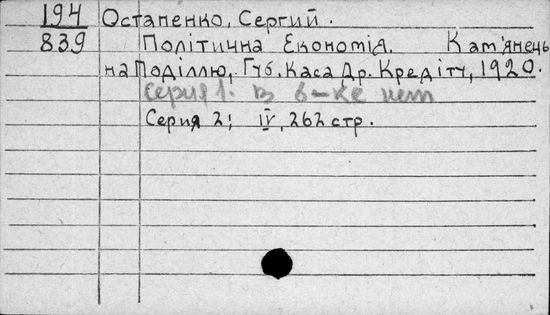 194
839
Остапенко, Сергий.
Політична Економія. Кам'янець
на Поділлю, Губ. Каса Др. Кредіту, 1920.
Серия 1. в б-ке нет
Серия 2; IV, 262 стр.